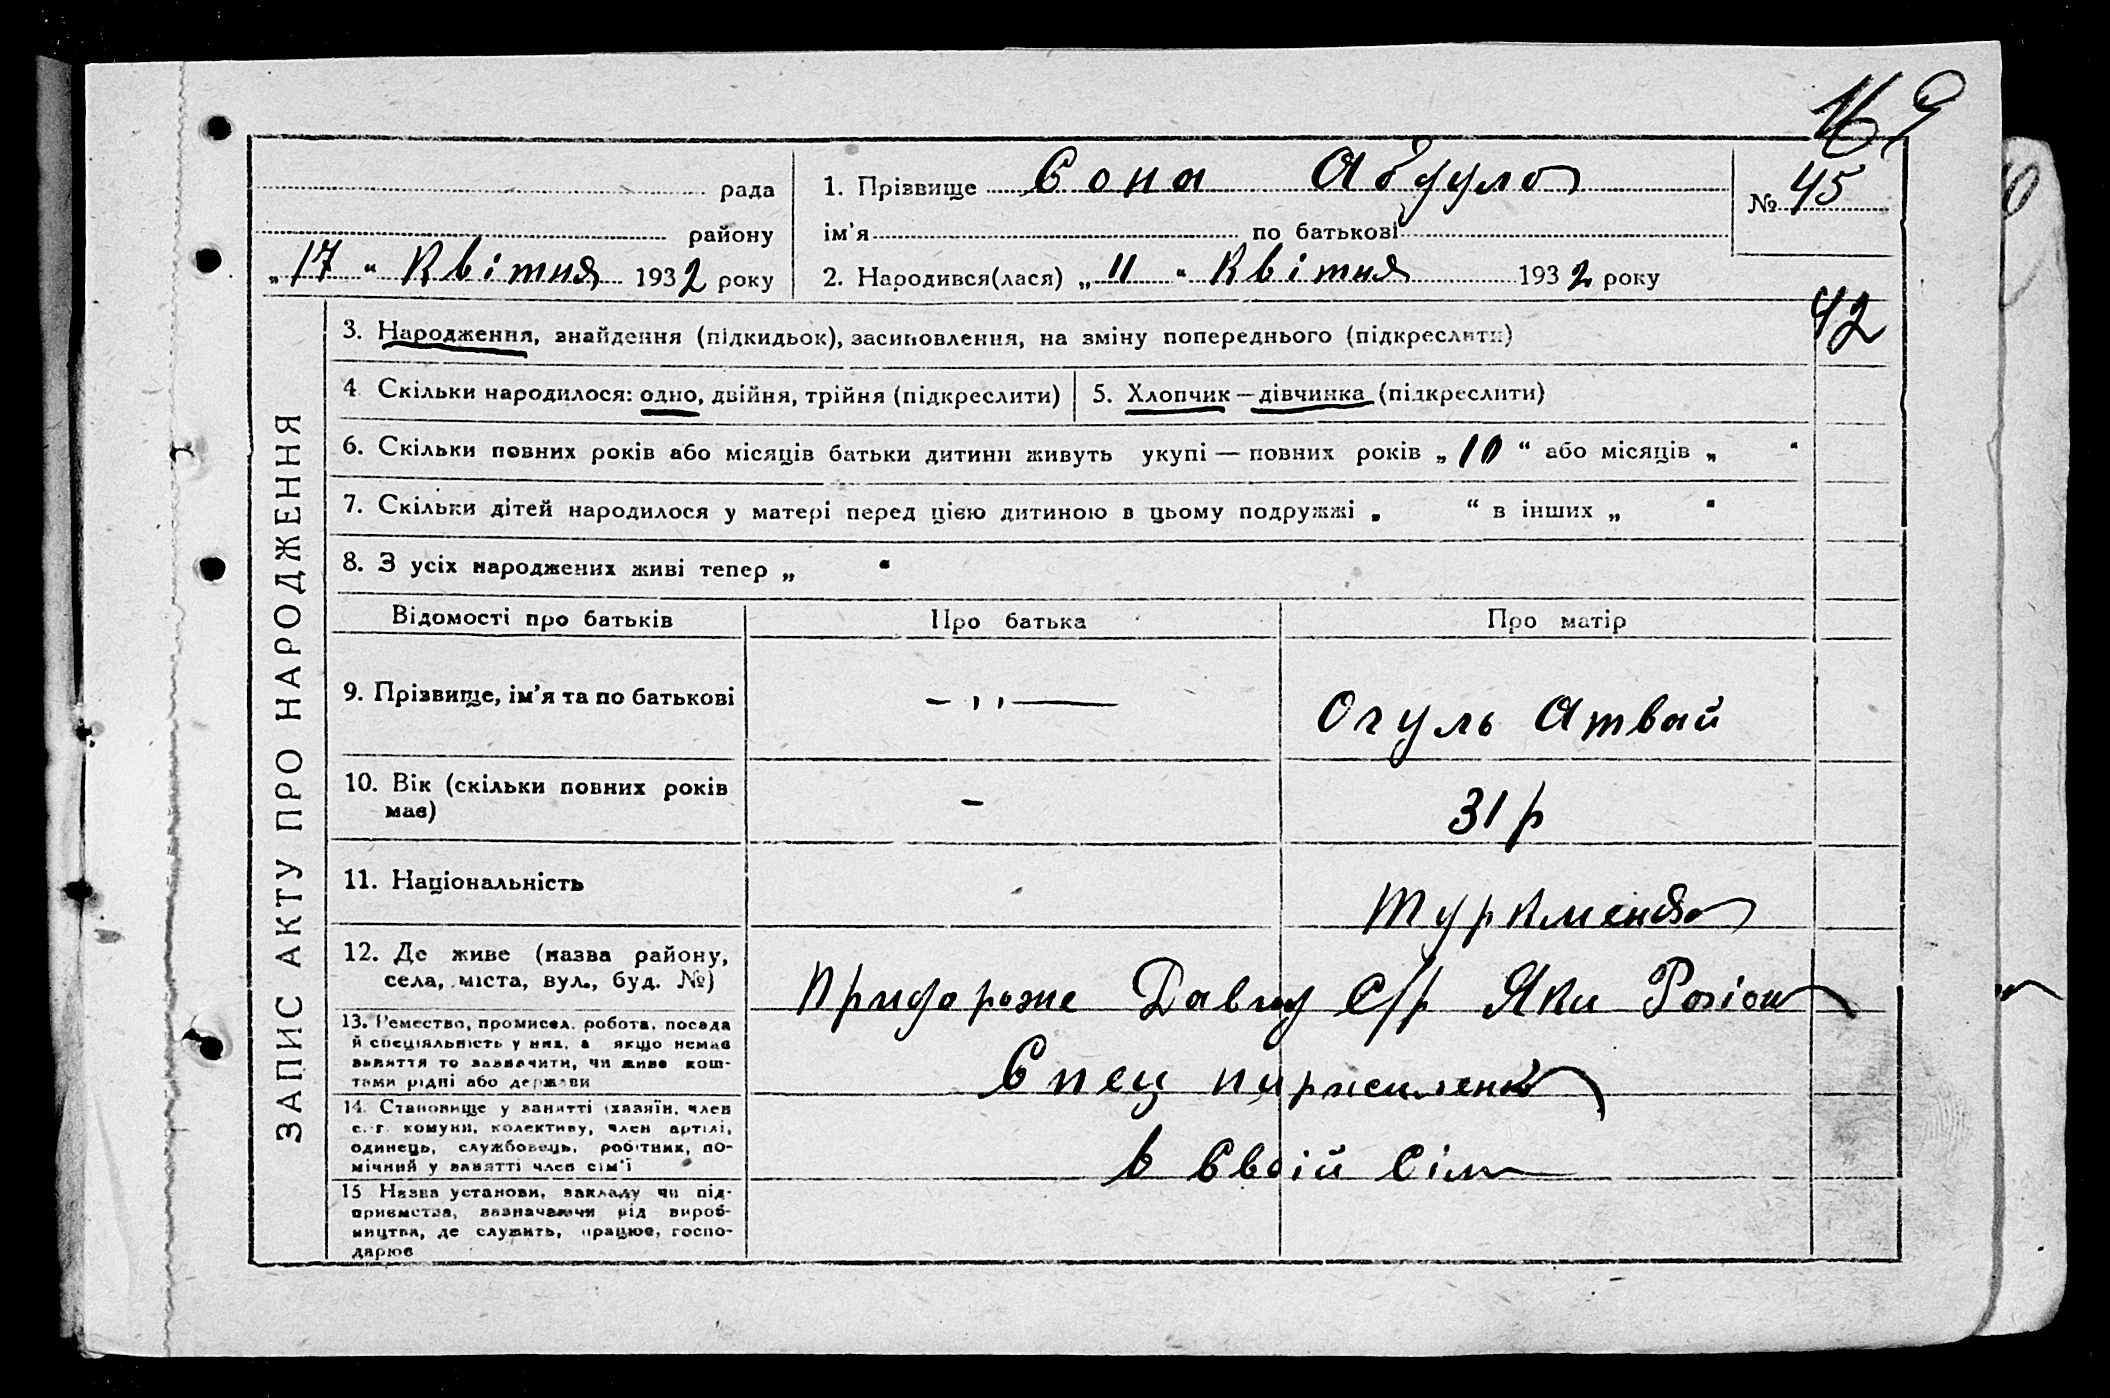 169
рада
району
„17“ Квітня 1932 року
1. Прізвище Сона Абдула
ім'я по батькові
№ 45
2. Народився(лася) „11“ Квітня 1932 року
42
ЗАПИС АКТУ ПРО НАРОДЖЕННЯ
3. Народження, знайдення (підкидьок), засиновлення, на зміну попереднього (підкреслити)
4 Скільки народилося: одно, двійня, трійня (підкреслити)
5. Хлопчик — дівчинка (підкреслити)
6. Скільки повних років або місяців батьки дитини живуть укупі — повних років „10“ або місяців „ “
7. Скільки дітей народилося у матері перед цією дитиною в цьому подружжі „ “ в інших „ “
8. З усіх народжених живі тепер „ “
Відомості про батьків
Про батька
Про матір
9. Прізвище, ім'я та по батькові
— „ —
Огуль Атвай
10. Вік (скільки повних років
має)
-
31 р
11. Національність
Туркменка
12. Де живе (назва району,
села, міста, вул., буд. №)
С/р
13. Ремество, промисел, робота, посада
й спеціяльність у них, а якщо немає
заняття то зазначити, чи живе кош-
тами рідні або держави
Спец
14. Становище у занятті (хазяїн, член
с.-г. комуни, колективу, член артілі,
одинець, службовець, робітник, по-
мічний у занятті член сім'ї
в Своій Сімі
15 Назва установи, закладу чи під-
приємства, зазначаючи рід вироб-
ництва, де служить, працює, госпо-
дарює